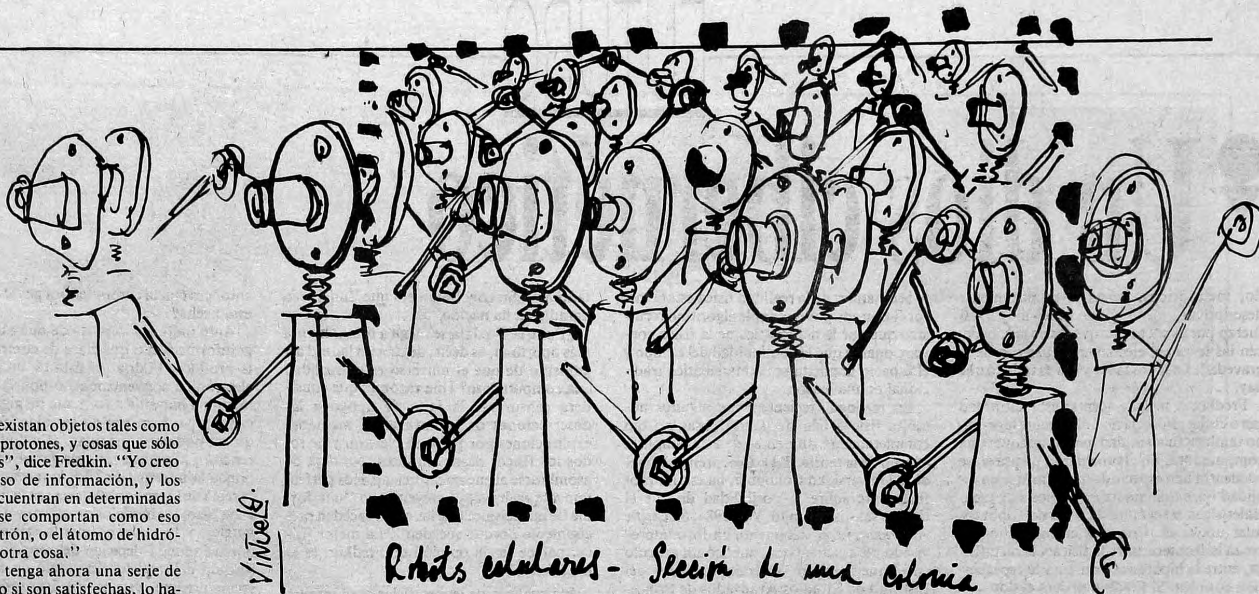 existan objetos tales como
protones, y cosas que sólo
s”, dice Fredkin. “Yo creo
so de información, y los
cuentran en determinadas
se comportan como eso
trón, o el átomo de hidró-
otra cosa.”
tenga ahora una serie de
o si son satisfechas, lo ha-
Viñuela.
Robots celulares - Sección de una colonia